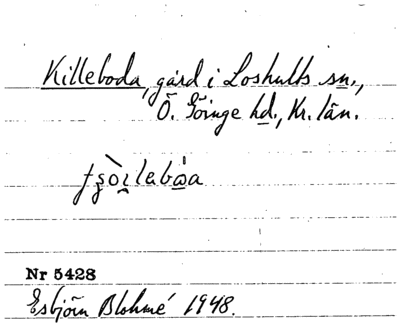 Killeboda, gård i Loshults sn.,
Ö. Göinge hd., Kr. län.
Nr 5428
Esbjörn Blohmé 1948.